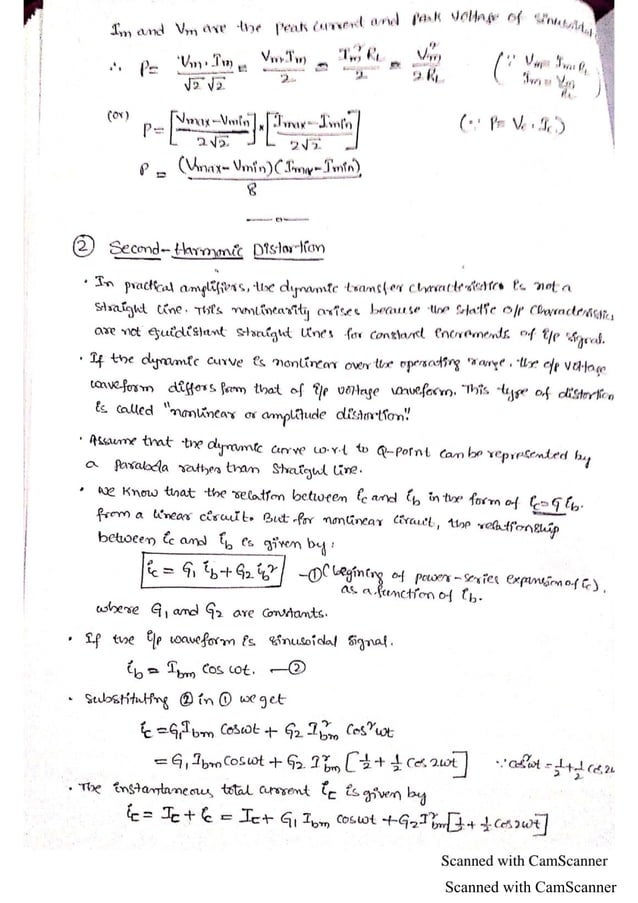 Im and Vm are the peak current and peak voltage of sinusoidal
∴ P = Vm.Im / √2 √2 = Vm.Im / 2 = Im² RL / 2 = Vm² / 2 RL (∵ Vm = Im RL Im = Vm / RL)
(or) P = [Vmax-Vmin / 2√2] * [Imax-Imin / 2√2] (∵ P = Vc . Ic)
P = (Vmax-Vmin)(Imax-Imin) / 8
② Second-Harmonic Distortion
• In practical amplifiers, the dynamic transfer characteristics is not a
straight line. This nonlinearity arises because the static o/p characteristics
are not equidistant straight lines for constant increments of i/p signal.
• If the dynamic curve is nonlinear over the operating range, the o/p voltage
waveform differs from that of i/p voltage waveform. This type of distortion
is called "nonlinear or amplitude distortion".
• Assume that the dynamic curve w.r.t to Q-point can be represented by
a parabola rather than straight line.
• We know that the relation between ic and ib in the form of ic = G ib.
from a linear circuit. But for nonlinear circuit, the relationship
between ic and ib is given by:
ic = G1 ib + G2 ib² —① (begining of power-series expansion of ic)
as a function of ib.
where G1 and G2 are constants.
• If the i/p waveform is sinusoidal signal.
ib = Ibm cos ωt. —②
• Substituting ② in ① we get
ic = G1 Ibm cosωt + G2 I²bm cos²ωt
= G1 Ibm cosωt + G2 I²bm [1/2 + 1/2 cos 2ωt] ∵ cos²ωt = 1/2 + 1/2 cos 2ω
• The instantaneous total current ic is given by
ic = Ic + ic = Ic + G1 Ibm cosωt + G2 I²bm [1/2 + 1/2 cos2ωt]
Scanned with CamScanner
Scanned with CamScanner